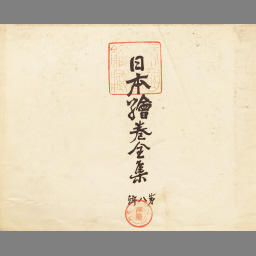 日本繪巻全集
第八輯